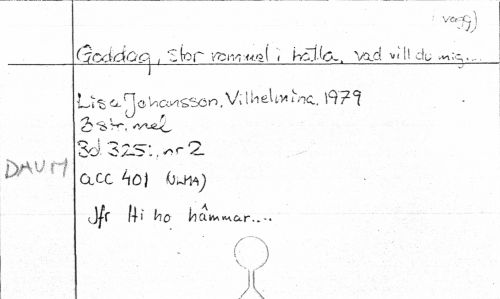 vagg)
Goddag, stor rommel i hatla, vad vill du mig...
Lisa Johansson, Vilhelmina, 1979
3 str. mel
Bd 325:, nr 2
DAUM
acc 401 (ULMA)
Jfr Hi ho hâmmar....